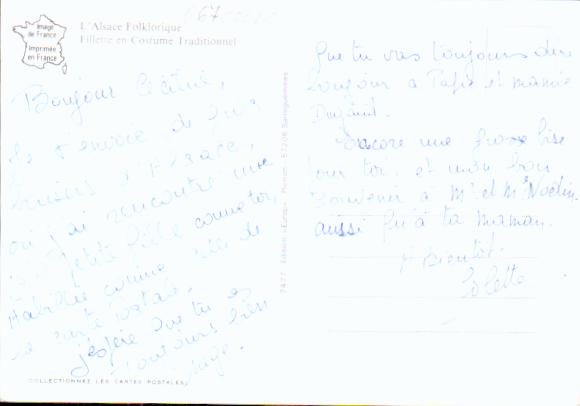 67
Image
de France
Imprimée
en France
L'Alsace Folklorique
Fillette en Costume Traditionnel
Bonjour
Je t'envoie de
d'Alsace,
où j'ai rencontré une
petite fille comme toi,
Habillée comme celle de
la carte postale.
j'espère que tu es
toujours bien
sage.
COLLECTIONNEZ LES CARTES POSTALES
7477 Edition «Europ» Pierron 57206 Sarreguemines
Que tu vas toujours dire
bonjour a Papie et mamie
Encore une grosse bise
pour toi, et mon bon
souvenir à Mr et Me
aussi qu'à ta maman.
A Bientôt.
Colette